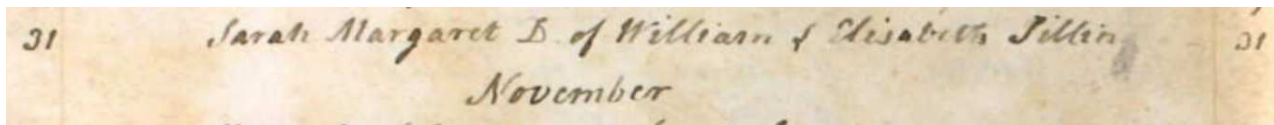 31 Sarah Margaret D of William & Elisabeth Jillin 31
November